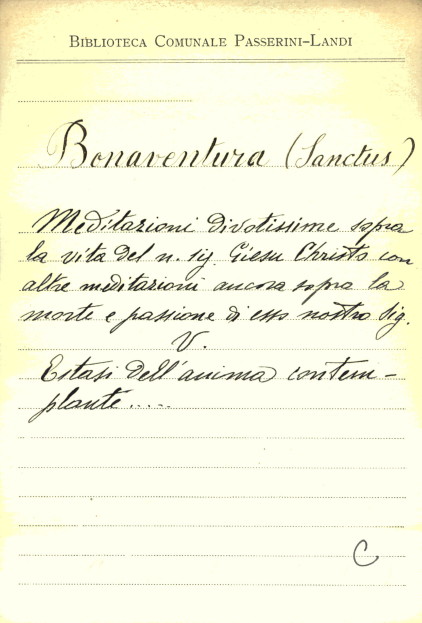 BIBLIOTECA COMUNALE PASSERINI-LANDI
Bonaventura (Sanctus)
Meditazioni divotissime sopra
la vita del n. sig. Giesu Christo con
altre meditazioni ancora sopra la
morte e passione di esso nostro Sig.
V.
Estasi dell'anima contem-
plante.....
C